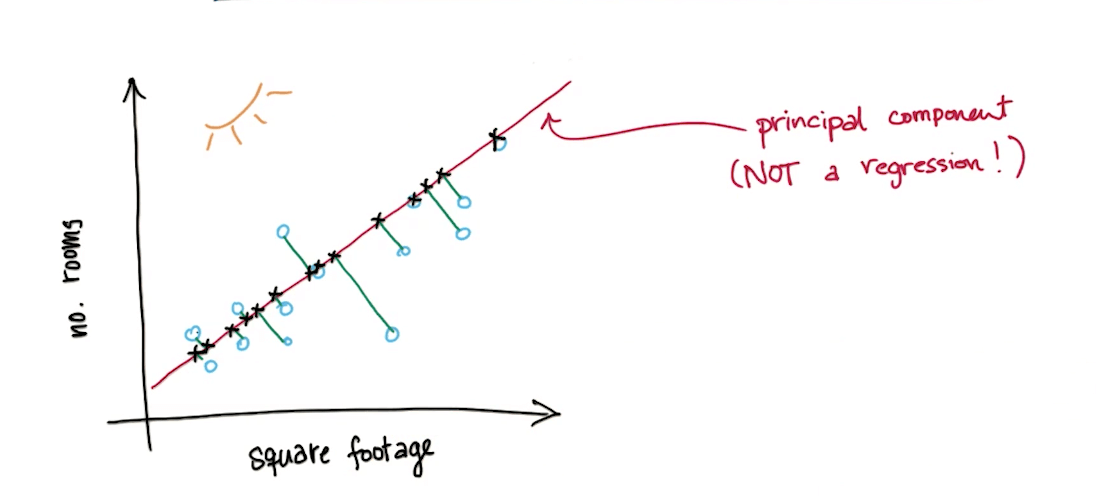 principal component
(NOT a regression!)
no. rooms
square footage